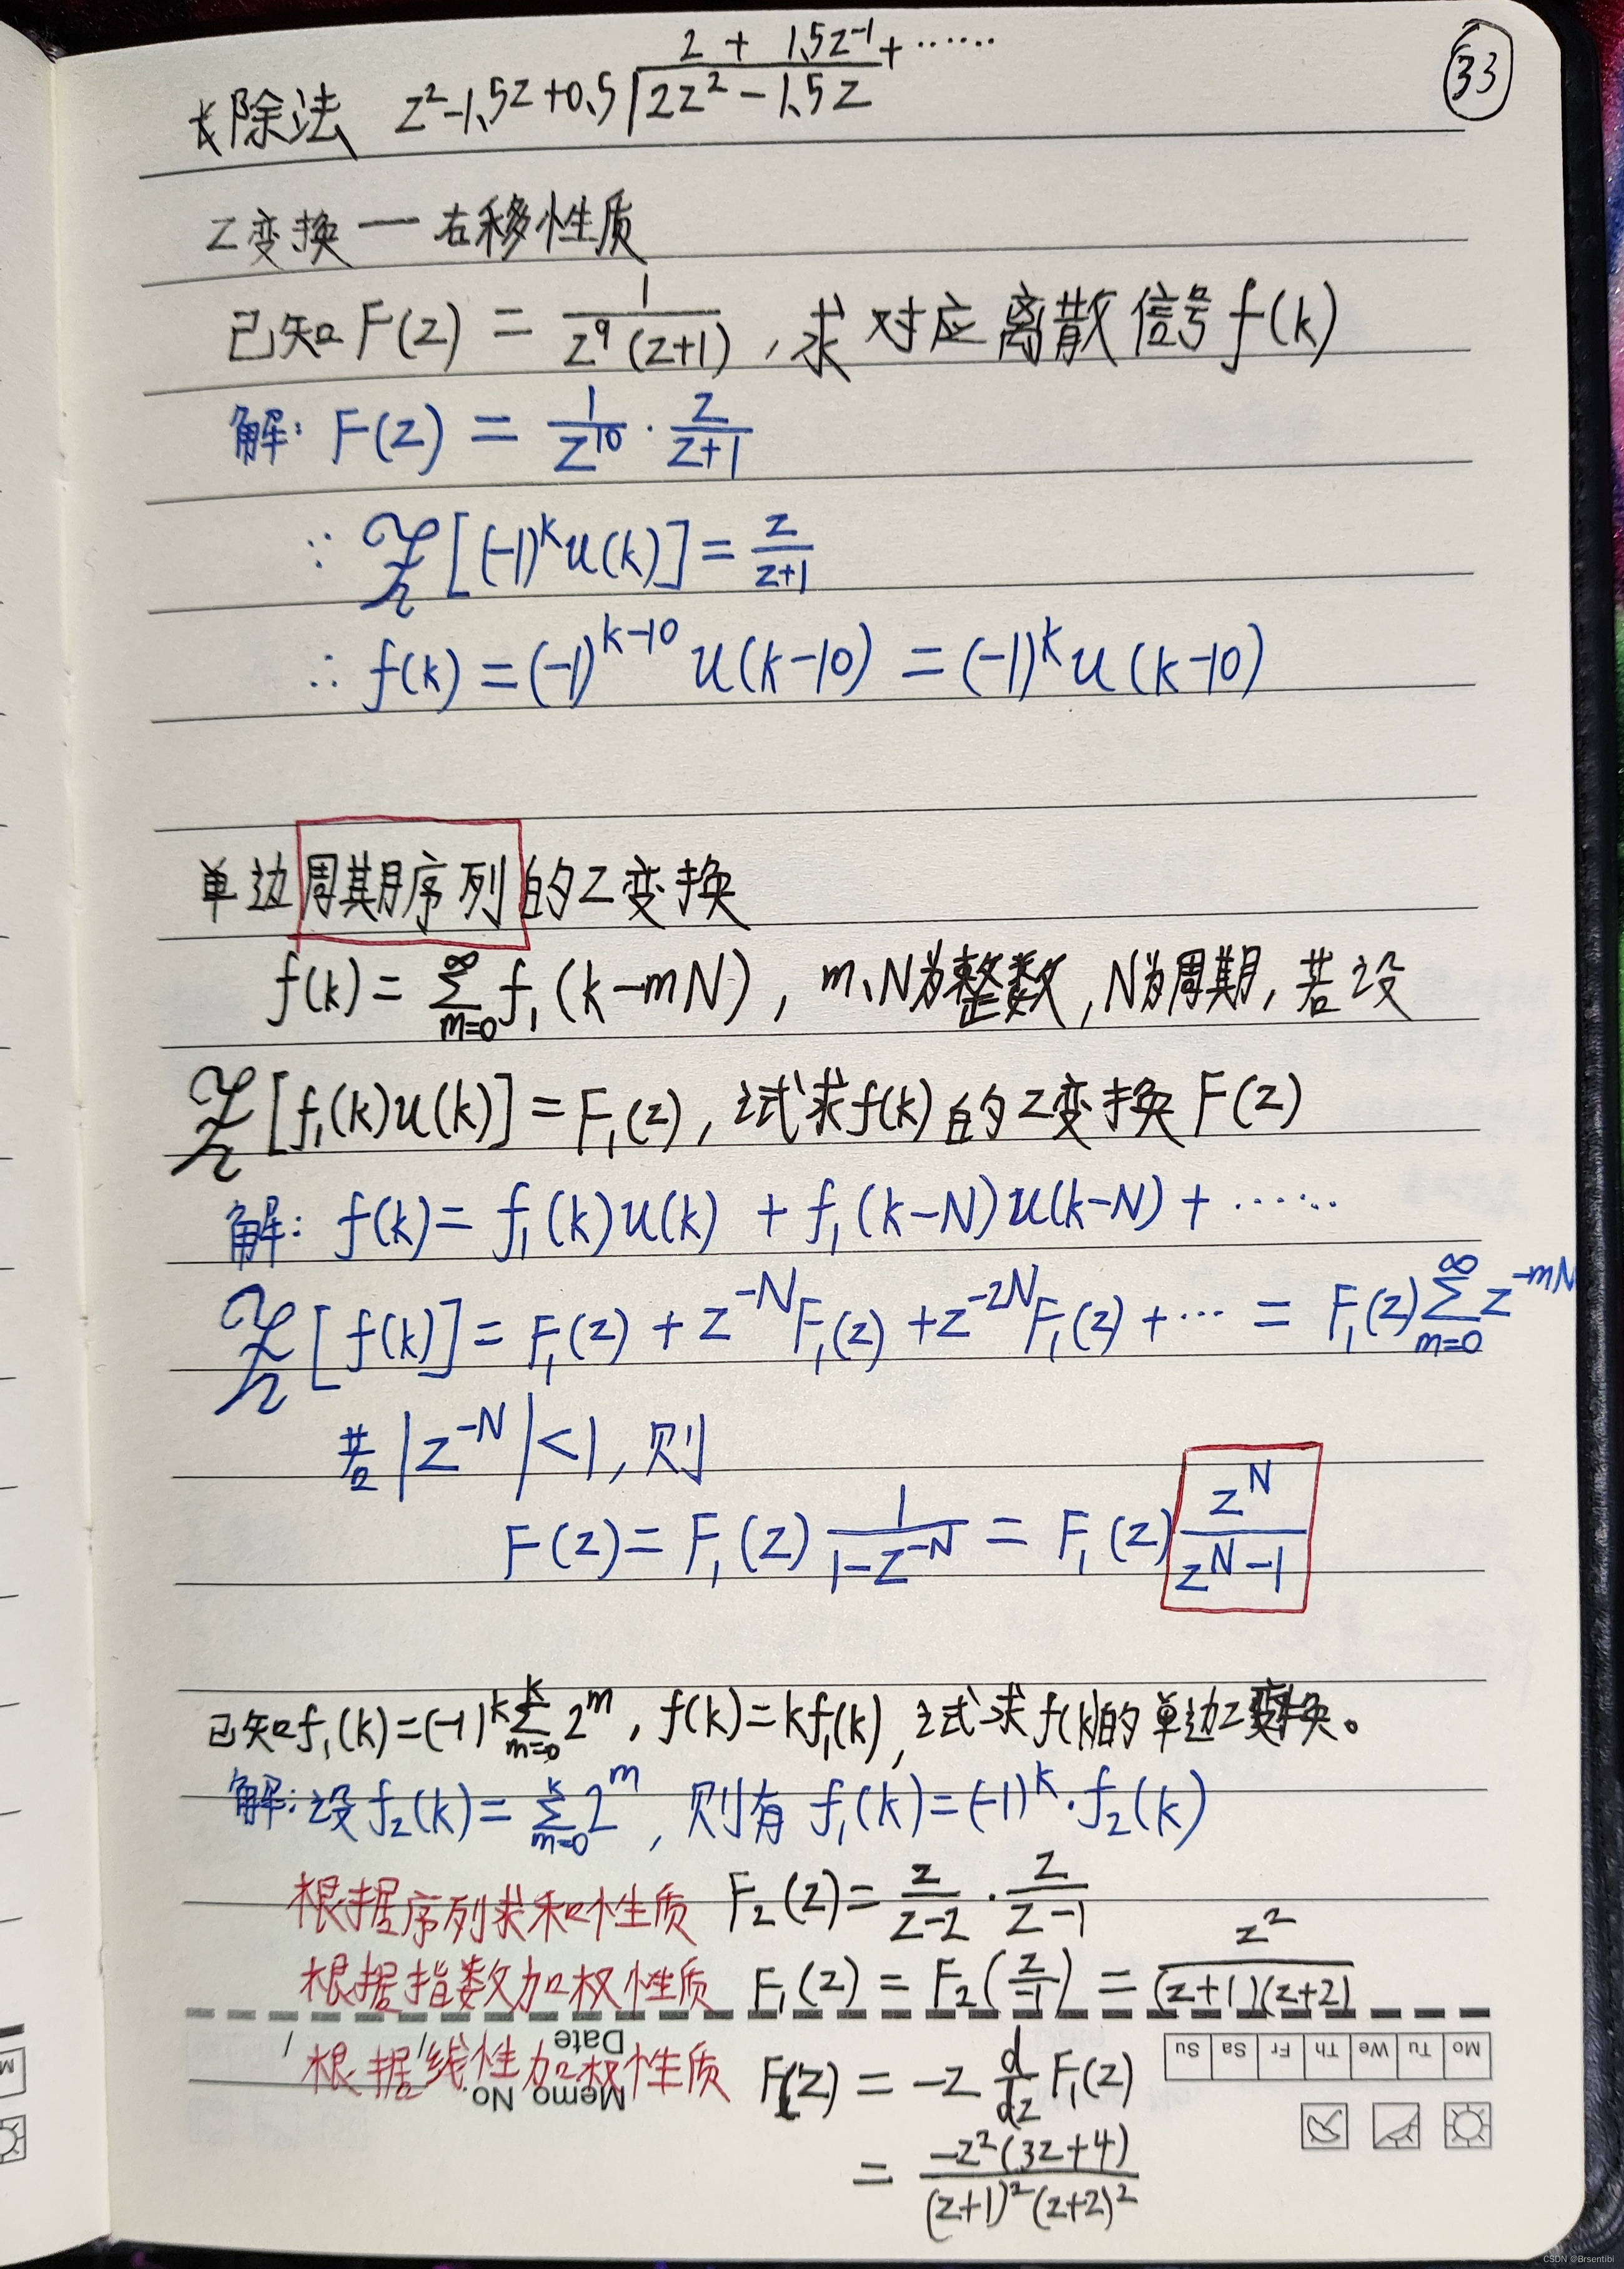 2 + 1.5z⁻¹ + ······
长除法 z²-1.5z+0.5 √2z² - 1.5z
33
Z变换 — 右移性质
已知F(z) = 1/(z⁹(z+1)), 求对应离散信号f(k)
解: F(z) = 1/z¹⁰ · z/(z+1)
∵ 𝒵[(-1)ᵏu(k)] = z/(z+1)
∴ f(k) = (-1)^(k-10) u(k-10) = (-1)ᵏ u(k-10)
单边周期序列的Z变换
f(k) = ∑_{m=0}^{∞} f₁(k-mN), m、N为整数, N为周期, 若设
𝒵[f₁(k)u(k)] = F₁(z), 试求f(k)的Z变换F(z)
解: f(k) = f₁(k)u(k) + f₁(k-N)u(k-N) + ······
𝒵[f(k)] = F₁(z) + z^(-N)F₁(z) + z^(-2N)F₁(z) + ··· = F₁(z)∑_{m=0}^{∞} z^(-mN)
若|z^(-N)|<1, 则
F(z) = F₁(z) 1/(1-z^(-N)) = F₁(z) z^N/(z^N-1)
已知f₁(k)=(-1)ᵏ∑_{m=0}^{k} 2ᵐ, f(k)=kf₁(k), 试求f(k)的单边Z变换。
解: 设f₂(k) = ∑_{m=0}^{k} 2ᵐ, 则有 f₁(k)=(-1)ᵏ·f₂(k)
根据序列求和性质 F₂(z) = z/(z-2) · z/(z-1)
根据指数加权性质 F₁(z) = F₂(z/-1) = z²/((z+1)(z+2))
根据线性加权性质 F(z) = -z d/dz F₁(z)
= -z²(3z+4)/((z+1)²(z+2)²)
Memo No.
Date
Mo Tu We Th Fr Sa Su
CSDN @Brsentibi